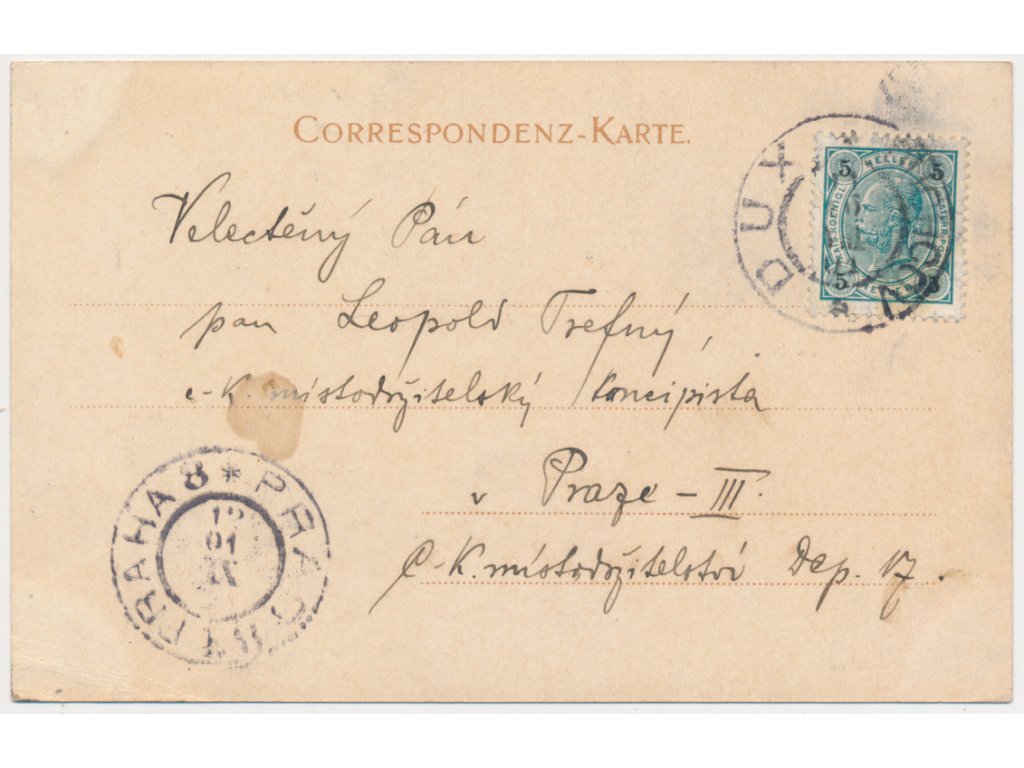 CORRESPONDENZ-KARTE.
DUX DUCHCOV
5 HELLER 5
5 HELLER 5
Velectěný Pán
pan Leopold Trefný,
c-K. místodržitelský koncipista
v Praze - III.
C-K. místodržitelství Dep. 17.
PRAHA 8 * PRAG
12
01